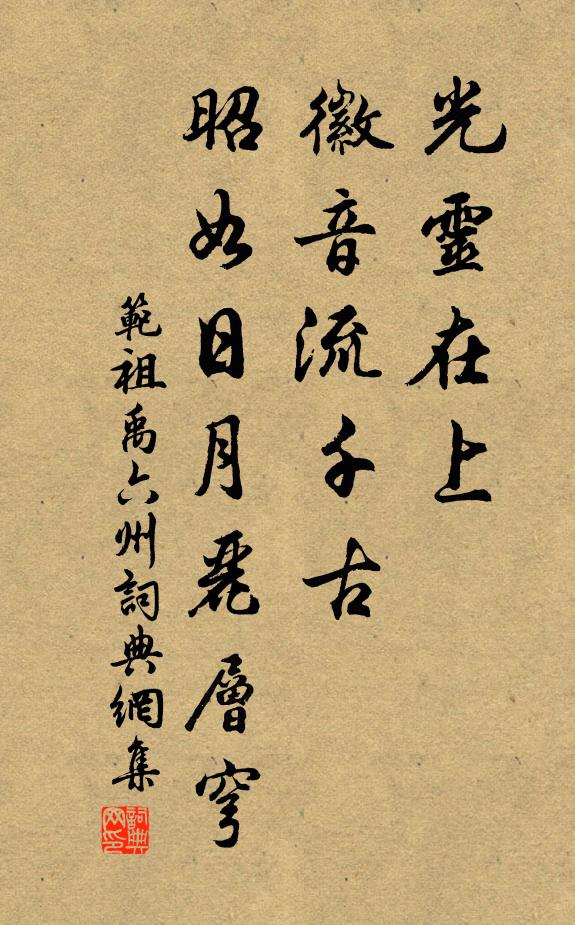 光靈在上
徽音流千古
昭如日月麗層穹
範祖禹六州詞典網集
詞典網印